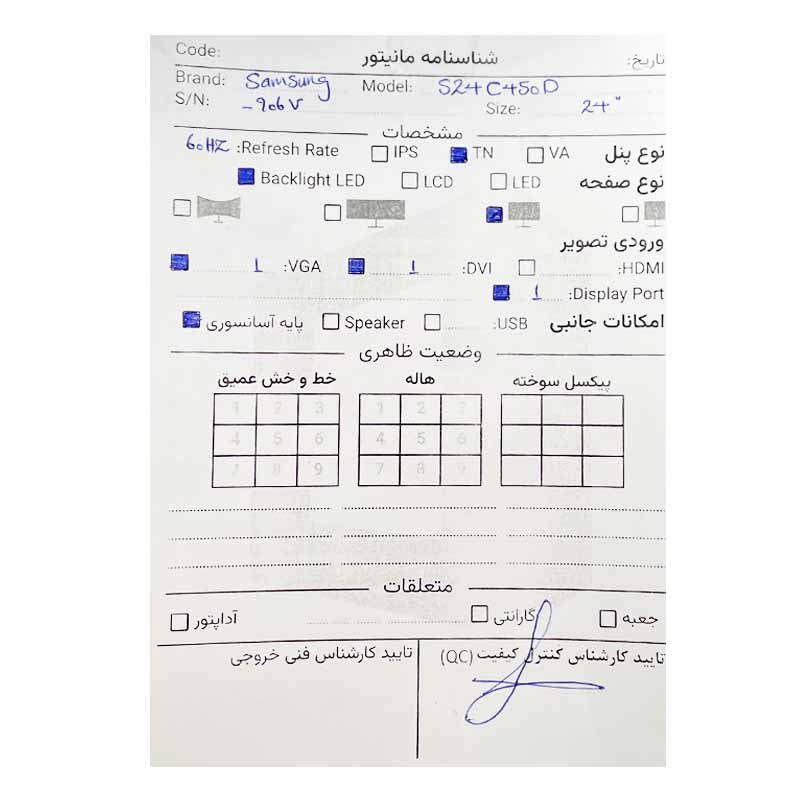 Code: شناسنامه مانیتور تاریخ:
Brand: Samsung Model: S24C450D
S/N: -906V Size: 24"
مشخصات
نوع پنل VA TN IPS Refresh Rate: 60HZ
نوع صفحه LED LCD Backlight LED
ورودی تصویر
HDMI: DVI: 1 VGA: 1
Display Port: 1
امکانات جانبی USB: Speaker پایه آسانسوری
وضعیت ظاهری
پیکسل سوخته هاله خط و خش عمیق
1 2 3 1 2 3
4 5 6 4 5 6
7 8 9 7 8 9
متعلقات
جعبه گارانتی آداپتور
تایید کارشناس کنترل کیفیت (QC) تایید کارشناس فنی خروجی